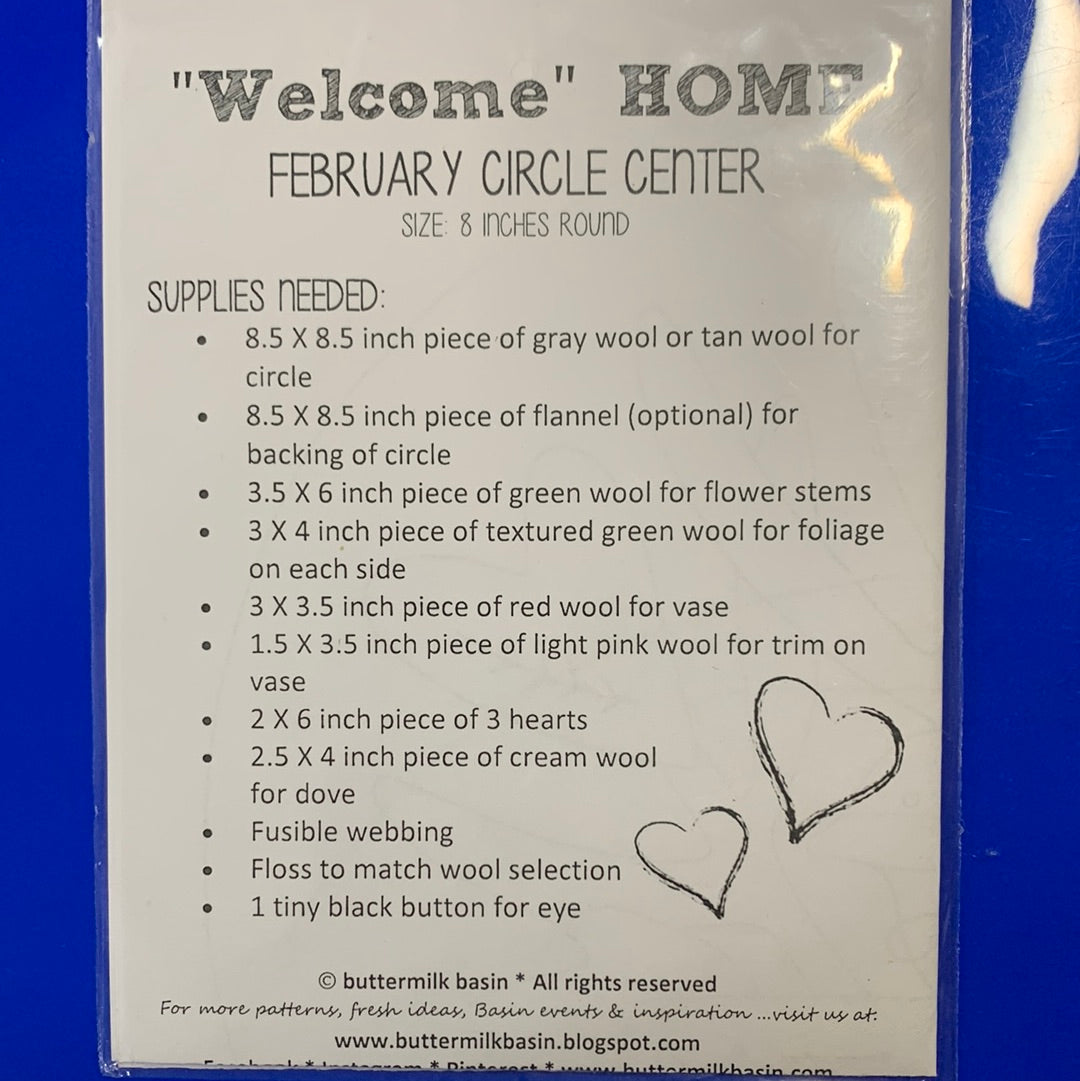 "Welcome" HOME
FEBRUARY CIRCLE CENTER
SIZE: 8 INCHES ROUND
SUPPLIES NEEDED:
• 8.5 X 8.5 inch piece of gray wool or tan wool for
circle
• 8.5 X 8.5 inch piece of flannel (optional) for
backing of circle
• 3.5 X 6 inch piece of green wool for flower stems
• 3 X 4 inch piece of textured green wool for foliage
on each side
• 3 X 3.5 inch piece of red wool for vase
• 1.5 X 3.5 inch piece of light pink wool for trim on
vase
• 2 X 6 inch piece of 3 hearts
• 2.5 X 4 inch piece of cream wool
for dove
• Fusible webbing
• Floss to match wool selection
• 1 tiny black button for eye
© buttermilk basin * All rights reserved
For more patterns, fresh ideas, Basin events & inspiration ...visit us at:
www.buttermilkbasin.blogspot.com
Facebook * Instagram * Pinterest * www.buttermilkbasin.com